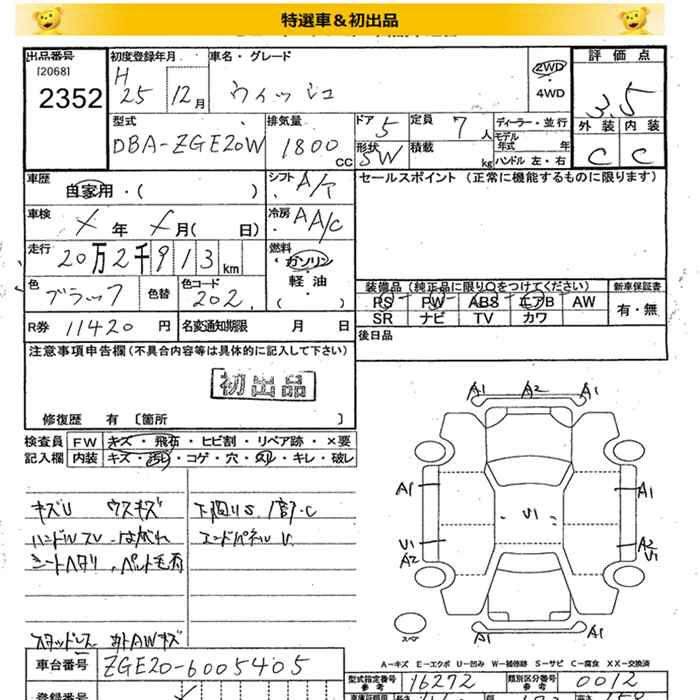 特選車＆初出品
出品番号 初度登録年月 車名・グレード 2WD 評価点
[2068] H 25 12月 ウィッシュ 4WD 3.5
2352
型式 排気量 ドア 5 定員 7人 ディーラー・並行 外装 内装
DBA-ZGE20W 1800cc 形状 SW 積載 kg モデル年式 年 C C
ハンドル 左・右
車歴 自家用・( ) シフト A/T セールスポイント (正常に機能するものに限ります)
車検 年 月( 日) 冷房 A A/C
走行 20万2千913km 燃料 ガソリン・軽油・( )
色 ブラック 色替 色コード 202 装備品 (純正品に限り○をつけてください) 新車保証書
PS PW ABS エアB AW 有・無
R券 11420円 名変通知期限 月 日 SR ナビ TV カワ
注意事項申告欄(不具合内容等は具体的に記入して下さい) 後日品
初出品
修復歴 有 [箇所 ]
検査員 FW キズ・飛石・ヒビ割・リペア跡・×要
記入欄 内装 キズ・汚れ・コゲ・穴・スレ・キレ・破レ
A1 A2 A1
キズU ウスキズ 下廻りS 1部・C
ハンドルスレ・はがれ エンドパネルU
シートヘタリ、ペット毛有
A1 A1
U1
U1 A2
A2 U1
スペア
A1 A1
スタッドレス 社外AWキズ
A－キズ E－エクボ U－凹み W－補修跡 S－サビ C－腐食 XX－交換済
車台番号 ZGE20-6005405
型式指定番号 参考 16272 類別区分番号 参考 0012